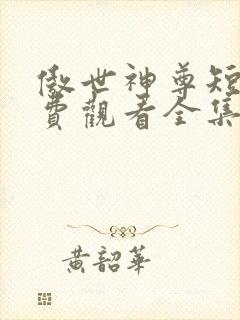 傲世神尊短
費觀看全集
黃韶華